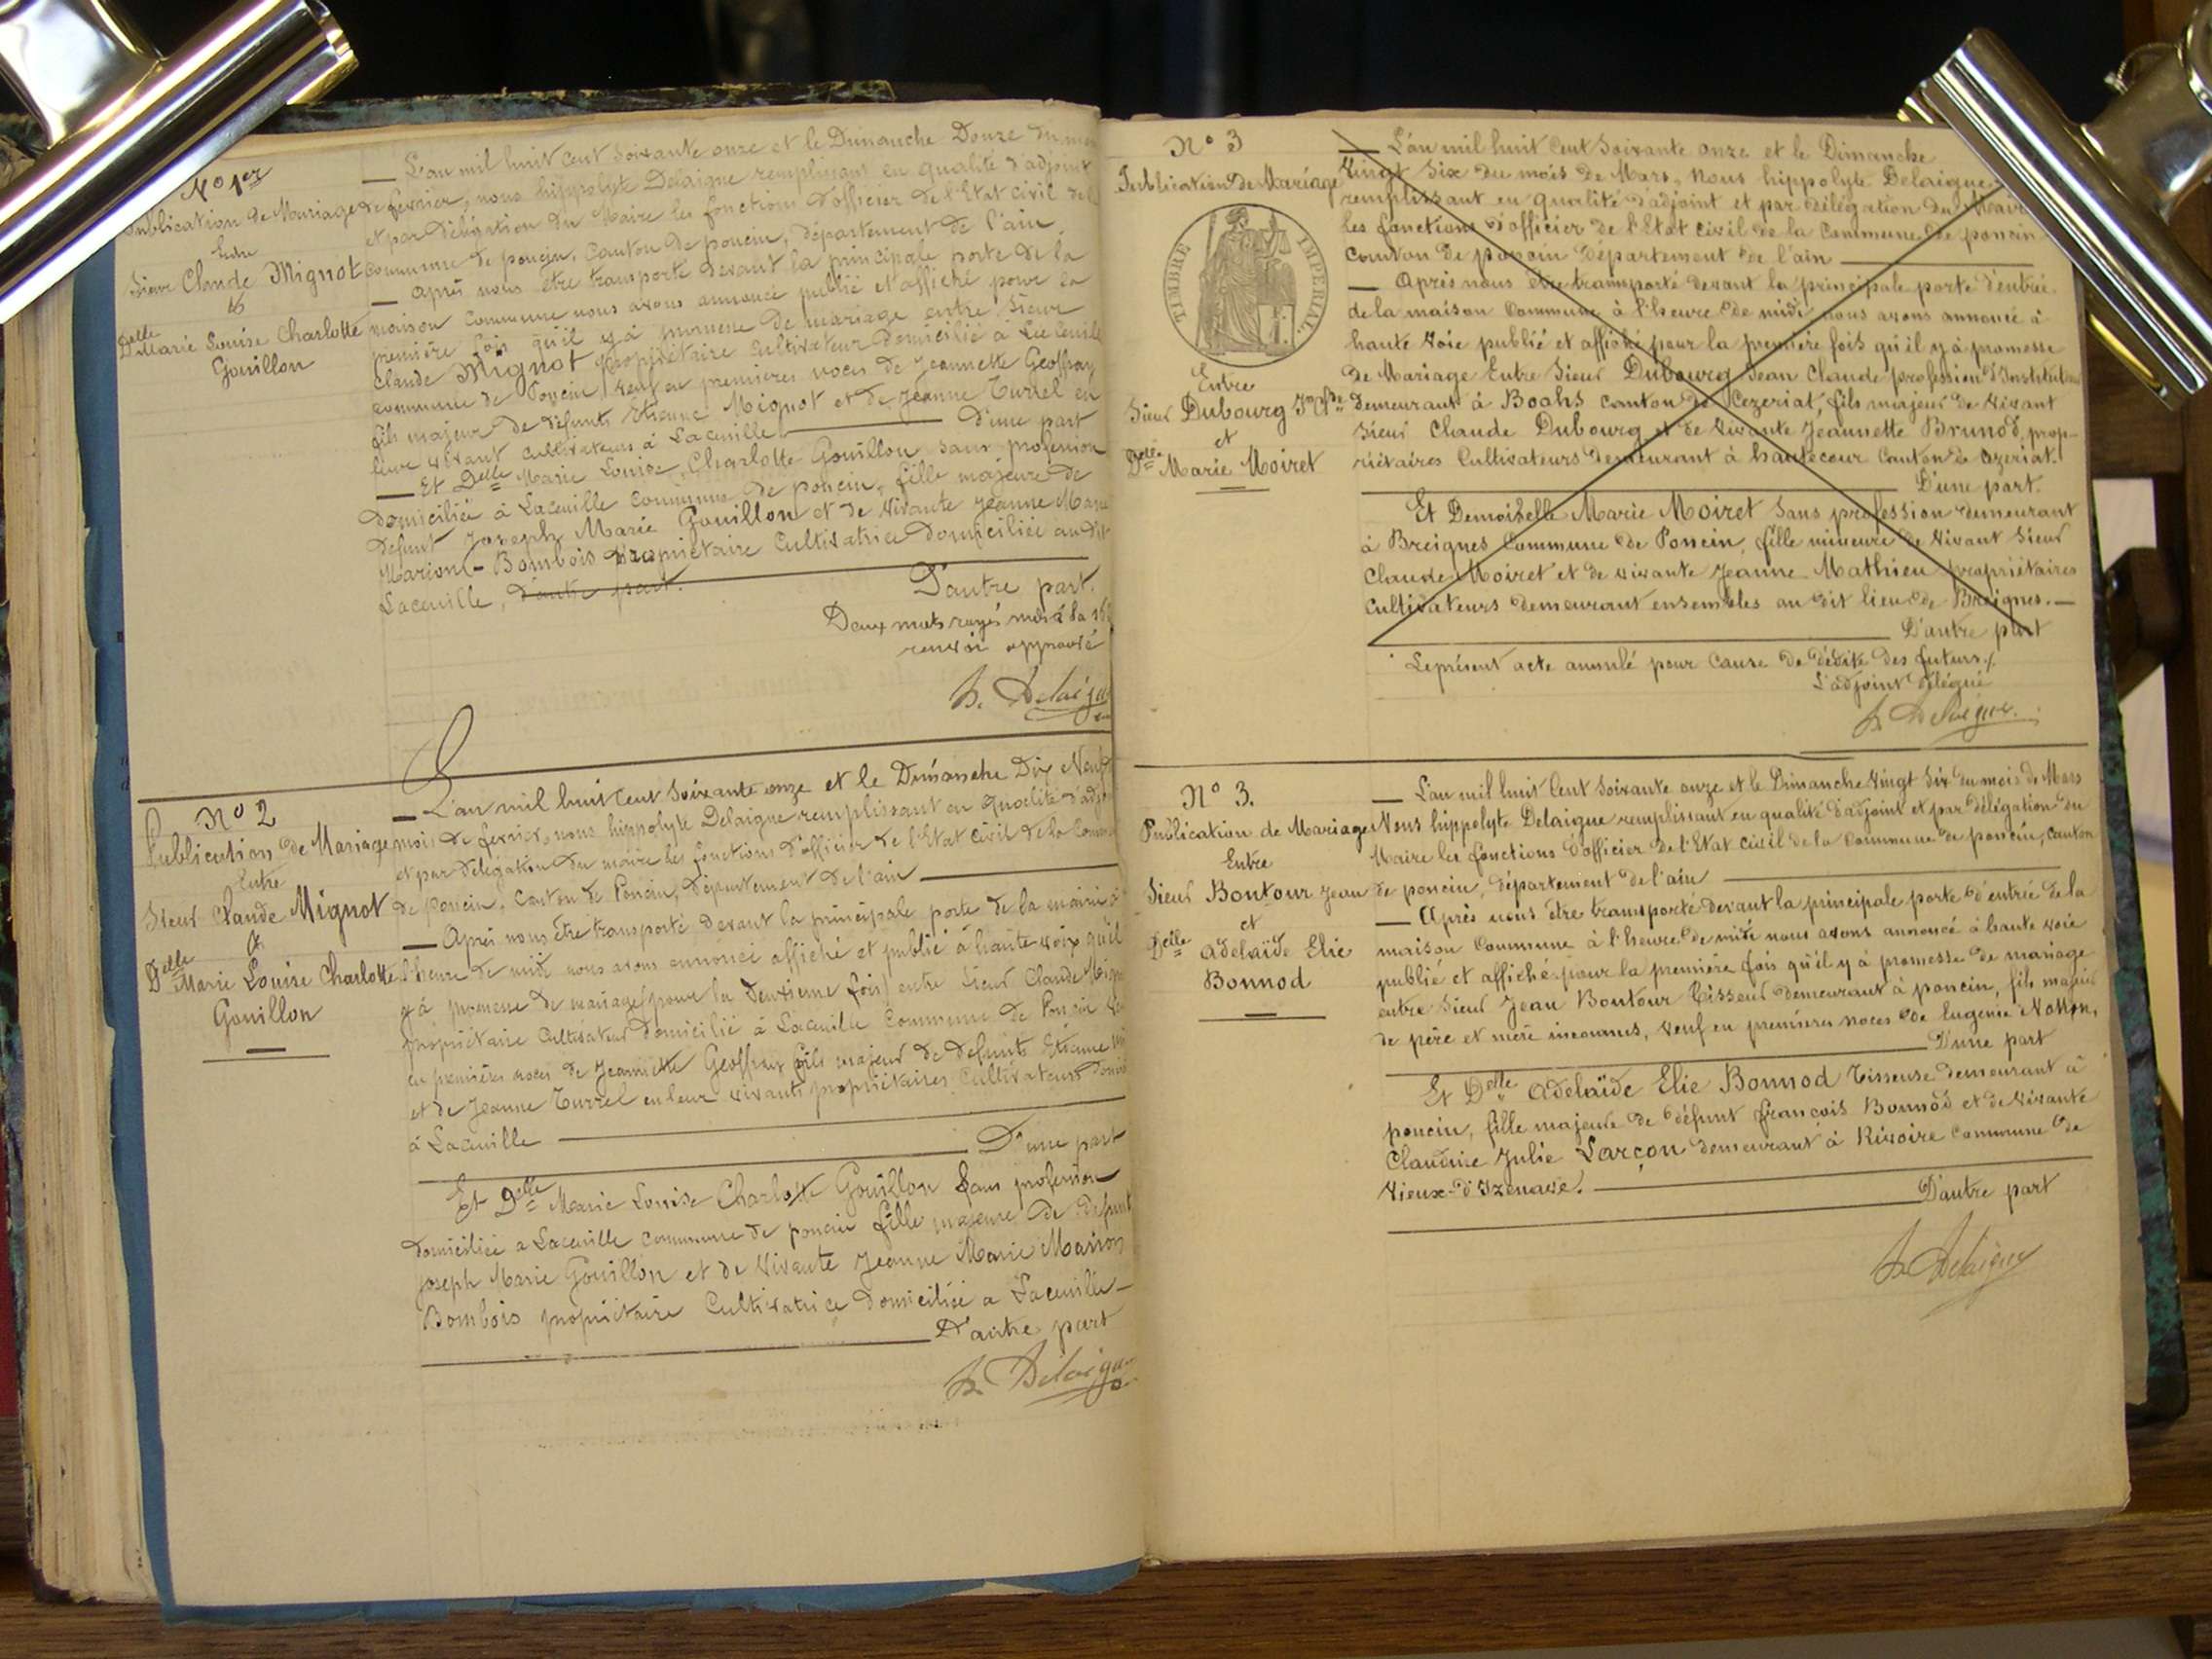 No 1er
Publication de Mariage
Entre
Sieur Claude Mignot
et
Delle Marie Louise Charlotte
Gouillon
L'an mil huit cent soixante onze et le Dimanche Douze du mois
de fevrier, nous hippolyte Delaigue remplissant en qualité d'adjoint
et par délégation du Maire les fonctions d'officier de l'Etat civil de la
commune de poncin, canton de poncin, département de l'ain.
Après nous être transporté devant la principale porte de la
maison commune nous avons annoncé publié et affiché pour la
première fois qu'il y à promesse de mariage entre Sieur
Claude Mignot propriétaire cultivateur domicilié à
commune de Poncin, veuf en premieres noces de Jeannette Geoffray
fils majeur de défunts Etienne Mignot et de Jeanne Turrel en
leur vivant cultivateurs à Laceuille D'une part
Et Delle Marie Louise Charlotte Gouillon sans profession
domiciliée à Laceuille commune de poncin, fille majeure de
défunt Joseph Marie Gouillon et de vivante Jeanne Marie
Marion-Bombois propriétaire cultivatrice domiciliée au dit
Laceuille, d'autre part.
D'autre part.
Deux mots rayés nuls à la 16e
renvoi approuvé
h. Delaigue
No 2
Publication de Mariage
Entre
Sieur Claude Mignot
et
Delle Marie Louise Charlotte
Gouillon
L'an mil huit cent soixante onze et le Dimanche Dix Neuf
mois de fevrier, nous hippolyte Delaigue remplissant en qualité d'adjoint
et par délégation du maire les fonctions d'officier de l'Etat civil de la Commune
de Poncin, canton de Poncin, département de l'ain
Après nous être transporté devant la principale porte de la mairie à
l'heure de midi nous avons annoncé affiché et publié à haute voix qu'il
y à promesse de mariage (pour la deuxieme fois) entre Sieur Claude Mignot
propriétaire cultivateur domicilié à Laceuille commune de Poncin veuf
en premières noces de Jeannette Geoffray fils majeur de défunts Etienne
et de Jeanne Turrel en leur vivants propriétaires cultivateurs
à Laceuille D'une part
Et Delle Marie Louise Charlotte Gouillon sans profession
domiciliée a Laceuille commune de poncin fille majeure de défunt
Joseph Marie Gouillon et de vivante Jeanne Marie Marion
Bombois propriétaire cultivatrice domiciliée a Laceuille
D'autre part
h. Delaigue
No 3
Publication de Mariage
TIMBRE IMPÉRIAL.
Entre
Sieur Dubourg Jn Cde
et
Delle Marie Moiret
L'an mil huit cent soixante onze et le Dimanche
Vingt six du mois de Mars, Nous hippolyte Delaigue
remplissant en qualité d'adjoint et par délégation du Maire
les fonctions d'officier de l'Etat civil de la commune de poncin
canton de poncin Département de l'ain
Après nous être transporté devant la principale porte d'entrée
de la maison commune à l'heure de midi nous avons annoncé à
haute voie publié et affiché pour la première fois qu'il y à promesse
de Mariage Entre Sieur Dubourg Jean Claude profession d'Instituteur
demeurant à Boahs canton de Cezeriat, fils majeur de vivant
Sieur Claude Dubourg et de vivante Jeannette Brunod, prop-
riétaires cultivateurs demeurant à hautecour canton de Cezeriat.
D'une part.
Et Demoiselle Marie Moiret sans profession demeurant
à Breignes commune de Poncin, fille mineure de vivant Sieur
Claude Moiret et de vivante Jeanne Mathieu propriétaires
cultivateurs demeurant ensembles au dit lieu de Breignes.
D'autre part
Le présent acte annulé pour cause de dédite des futurs
L'adjoint délégué
h. Delaigue
No 3.
Publication de Mariage
Entre
Sieur Bontour Jean
et
Delle Adelaïde Elie
Bonnod
L'an mil huit cent soixante onze et le Dimanche vingt six du mois de Mars
Nous hippolyte Delaigue remplissant en qualité d'adjoint et par délégation du
Maire les fonctions d'officier de l'Etat civil de la commune de poncin, canton
de poncin, département de l'ain
Après nous être transporté devant la principale porte d'entrée de la
maison commune à l'heure de midi nous avons annoncé à haute voie
publié et affiché pour la première fois qu'il y à promesse de mariage
entre Sieur Jean Bontour Tisseur demeurant à poncin, fils majeur
de père et mère inconnus, veuf en premieres noces de Eugenie
D'une part
Et Delle Adelaïde Elie Bonnod Tisseuse demeurant à
poncin, fille majeure de défunt françois Bonnod et de vivante
Claudine Julie Larçon demeurant à Rivoire commune de
Vieux-d'Izenave.
D'autre part
h. Delaigue